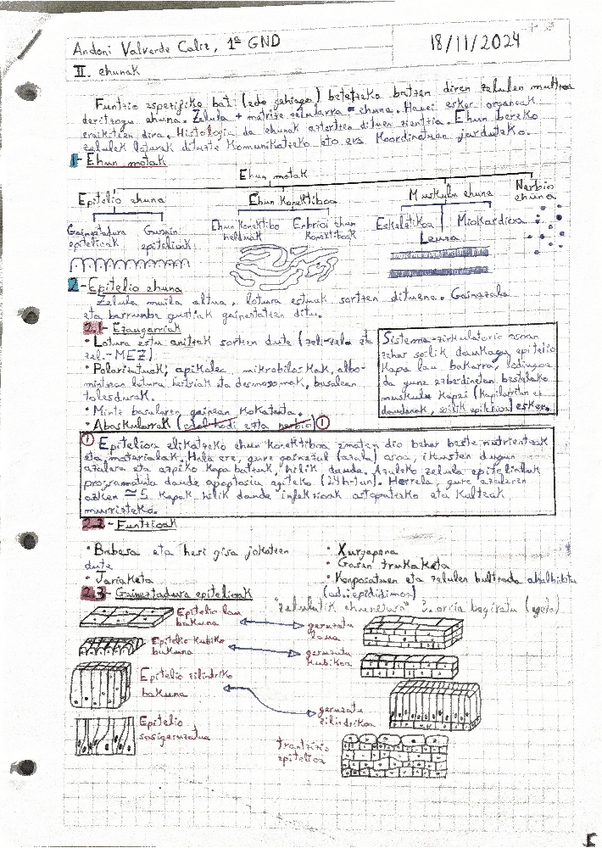 Andoni Valverde Caliz, 1º GND
18/11/2024
II. ehunak
Funtzio espezifiko bat (edo gehiago) betetzeko batzen diren zelulen multzoa
deritzogu ehuna. Zelula + matrize zelularra = ehuna. Hauei esker organoak
eraikitzen dira. Histologia da ehunak aztertzen dituen zientzia. Ehun bereko
zelulek loturak dituzte komunikatzeko eta era koordinatuan jarduteko.
1- Ehun motak
Ehun motak
Epitelio ehuna
Ehun konektiboa
Muskulu ehuna
Nerbio ehuna
Gainestadura epitelioak
Guruin epitelioak
Ehun konektibo helduak
Enbrioi ehun konektiboak
Eskeletikoa
Leuna
Miokardioa
2- Epitelio ehuna
Zelula maila altua, lotura estuak sortzen dituena. Gainazala
eta barrunbe guztiak gainestatzen ditu.
2.1- Ezaugarriak
• Lotura estu anitzak sortzen dute (zel-zela eta
zel-MEZ)
• Polarizatuak; apikalea mikrobiloskak, albo-
mintzean loturak eta desmosomak, basalean
tolesdurak.
• Mintz basalaren gainean kokatuta.
• Abaskularrak ①
Sistema zirkulatorio osoan
zehar soilik daukagu epitelio
kapa lau bakarra, lodiagoa
da gune zabaldinetan bestelako
muskulu kapei (kapilarretan ez
daudenak, soilik epitelioa) esker.
① Epitelioa elikatzeko ehun konektiboa ematen dio behar beste nutrienteak
eta materialak. Hala ere, gure gainazal (azala) osoa, ikusten dugun
azalera eta azpiko kapa batzuk, hilik daude. Azaleko zelula epitelialak
programatuta daude apoptosia egiteko (24h-tan). Horrela, gure azalaren
azken ≃ 5 kapak hilik daude infekzioak aztopatzeko eta kalteak
murrizteko.
2.2- Funtzioak
• Babesa eta hesi gisa jokatzen
dute
• Jariaketa
• Xurgapena
• Gasen trukaketa
• Konposatuen eta zelulen bultzada ahalbidetu
(ad.: epididimoa)
2.3- Gainestadura epitelioak
"zelulatik ehunetara" 3. orria begiratu (egela)
Epitelio lau
bakuna
geruzatu
laua
Epitelio kubiko
bakuna
geruzatu
kubikoa
Epitelio zilindriko
bakuna
geruzatu
zilindrikoa
Epitelio
sasigeruzatua
trantzizio
epitelioa